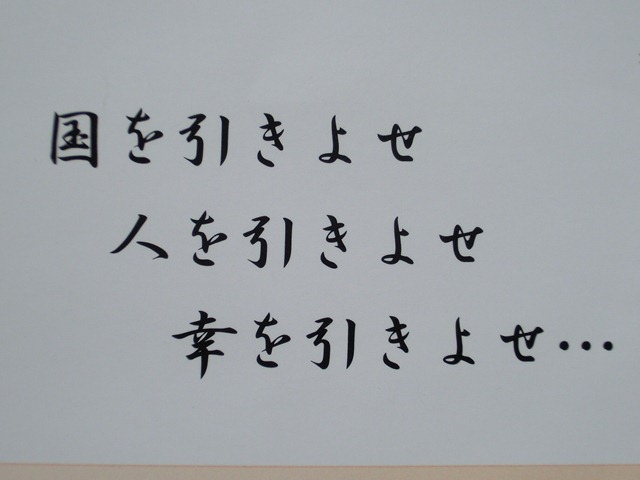 国を引きよせ
人を引きよせ
幸を引きよせ…